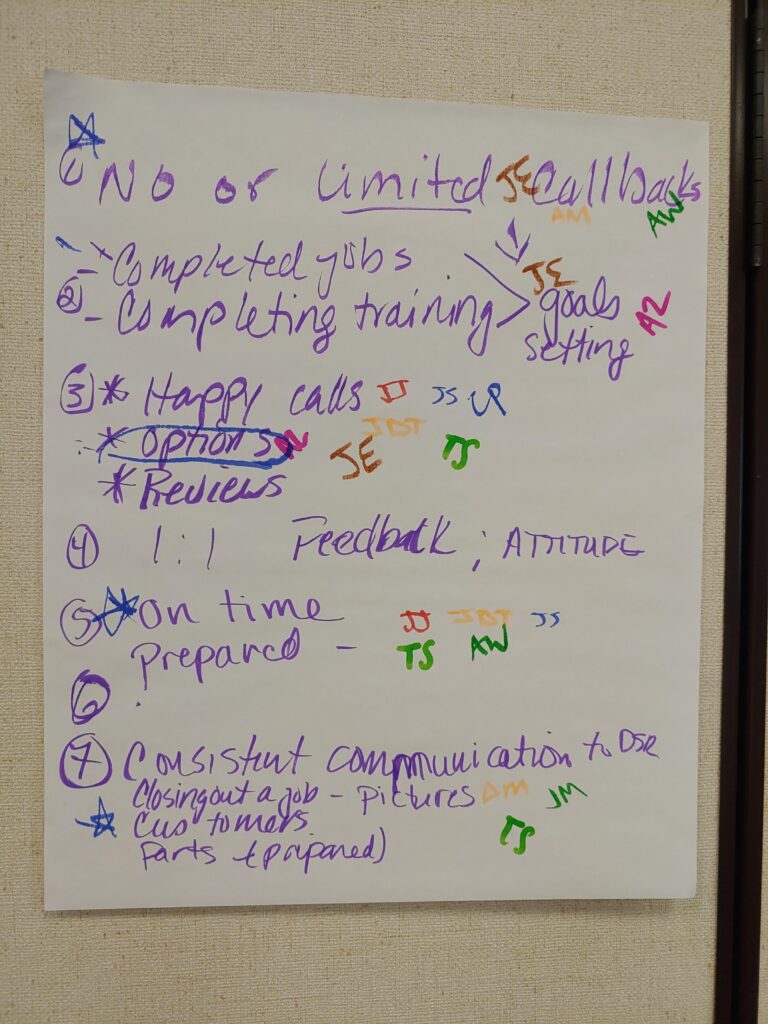 1 No or limited JE Callbacks
AM AW
- Completed jobs JE
2 - Completing training > goals AZ
setting
3 * Happy calls JJ JS
* Options AZ JE JDT TS
* Reviews
4 1:1 Feedback ; ATTITUDE
5 On time JJ JDT JS
Prepared - TS AW
6
7 Consistent communication to DSR
Closing out a job - Pictures DM JM
Customers TS
Parts (prepared)